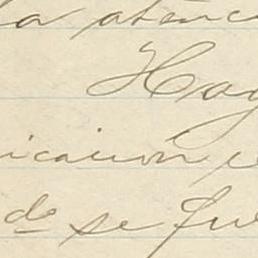 la atenc
Hag
icacion
do se fu